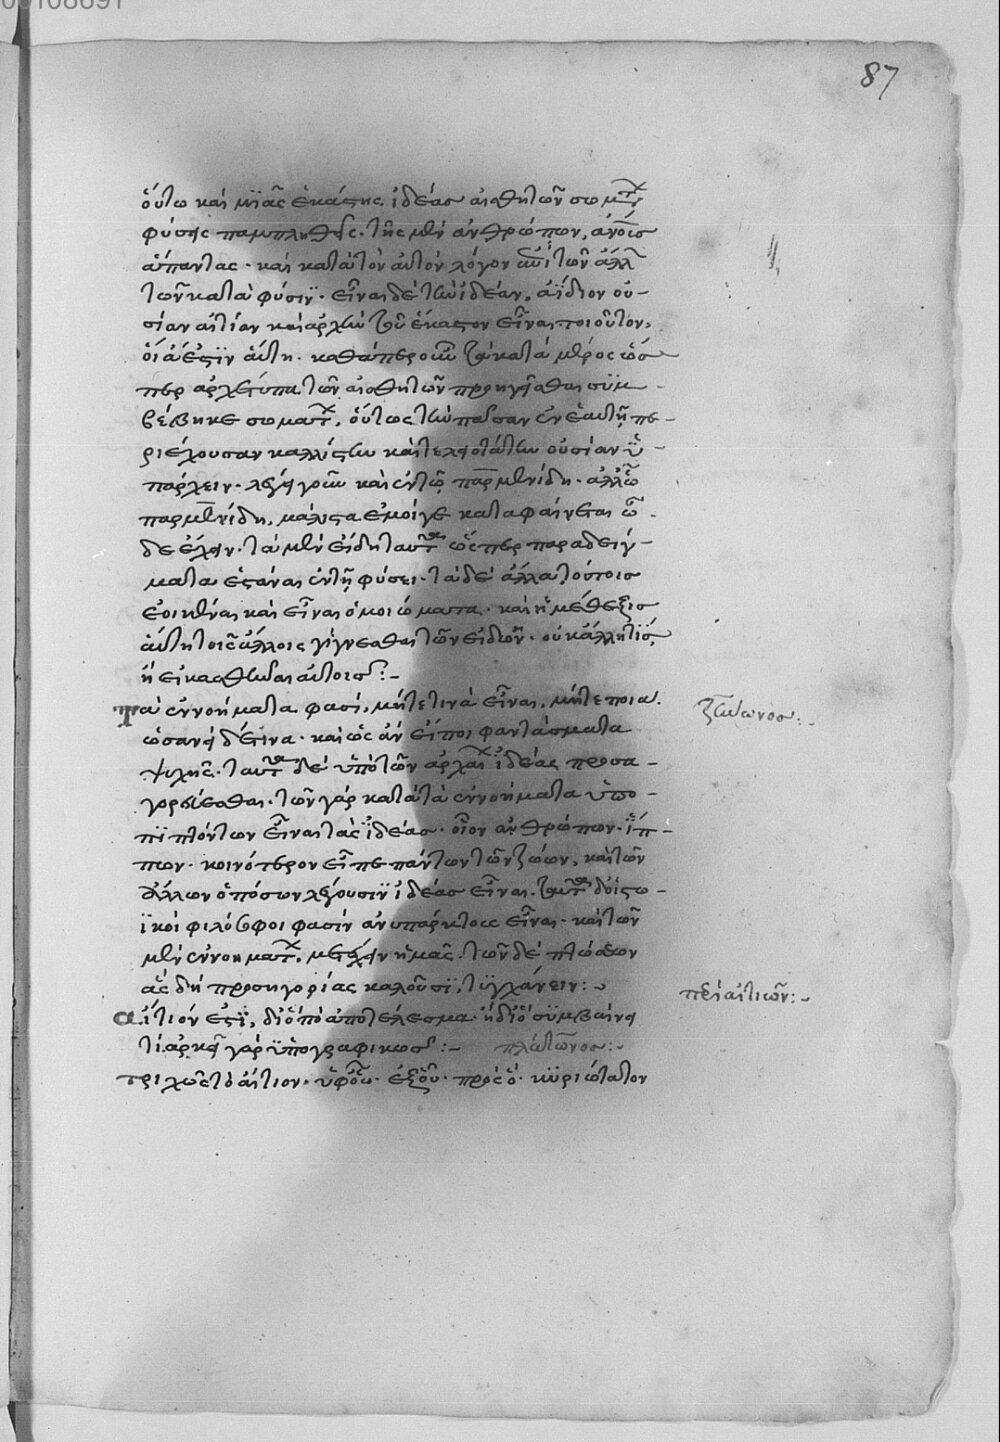 87
οὕτω καὶ μιᾶς ἑκάστης ἰδέας αἰσθητῶν σωμάτων
φύσις παμπληθής. τῆς μὲν ἀνθρώπων, ἀνθρώπους
ἅπαντας. καὶ κατὰ τὸν αὐτὸν λόγον ἐπὶ τῶν ἄλλων
τῶν κατὰ φύσιν. εἶναι δὲ τὴν ἰδέαν, ἀΐδιον οὐ-
σίαν αἰτίαν καὶ ἀρχὴν τοῦ ἕκαστον εἶναι τοιοῦτον,
οἵα ἐστὶν αὕτη. καθάπερ οὖν τὰ κατὰ μέρος ὥσ
περ ἀρχέτυπα τῶν αἰσθητῶν προηγεῖσθαι συμ-
βέβηκε σωμάτων, οὕτως τὴν πασαν ἐν ἑαυτῇ πε-
ριέχουσαν καλλίστην καὶ τελειοτάτην οὐσίαν ὑ-
πάρχειν. λέγει γοῦν καὶ ἐν τῷ παρμενίδῃ. ἀλλ' ὦ
παρμενίδη, μάλιστα ἔμοιγε καταφαίνεται ὧ-
δε ἔχειν. τὰ μὲν εἴδη ταῦτα ὥσπερ παραδείγ-
ματα ἑστάναι ἐν τῇ φύσει. τὰ δὲ ἄλλα τούτοις
ἐοικέναι καὶ εἶναι ὁμοιώματα. καὶ ἡ μέθεξις
αὕτη τοῖς ἄλλοις γίγνεσθαι τῶν εἰδῶν. οὐκ ἄλλη τις,
ἢ εἰκασθῆναι αὐτοῖς:-
Τὰ ἐννοήματα φασὶ, μήτε τινὰ εἶναι, μήτε ποιὰ. ζήνωνος:-
ὡσανεὶ δέ τινα. καὶ ὡς ἂν εἴποι φαντάσματα
ψυχῆς. ταῦτα δὲ ὑπὸ τῶν ἀρχαίων ἰδέας προσα-
γορεύεσθαι. τῶν γὰρ κατὰ τὰ ἐννοήματα ὑπο-
πιπτόντων εἶναι τὰς ἰδέας. οἷον ἀνθρώπων. ἵπ-
πων. κοινότερον εἶπε πάντων τῶν ζώων, καὶ τῶν
ἄλλων ὁπόσων λέγουσιν ἰδέας εἶναι. ταῦτα δὲ οἱ στω-
ϊκοὶ φιλόσοφοι φασὶν ἀνυπάρκτους εἶναι. καὶ τῶν
μὲν ἐννοημάτων, μετέχειν ἡμᾶς. τῶν δὲ πτώσεων
ἃς δὴ προσηγορίας καλοῦσι, τυγχάνειν:-
αἴτιόν ἐστι, δι' ὃ τὸ ἀποτέλεσμα. ἢ δι' ὃ συμβαίνει περὶ αἰτιῶν:-
τι ἀρκεῖ γὰρ ὑπογραφικῶς:- πλάτωνος:-
τριχῶς τὸ αἴτιον. ὑφ' οὗ. ἐξ οὗ. πρὸς ὅ. κυριώτατον